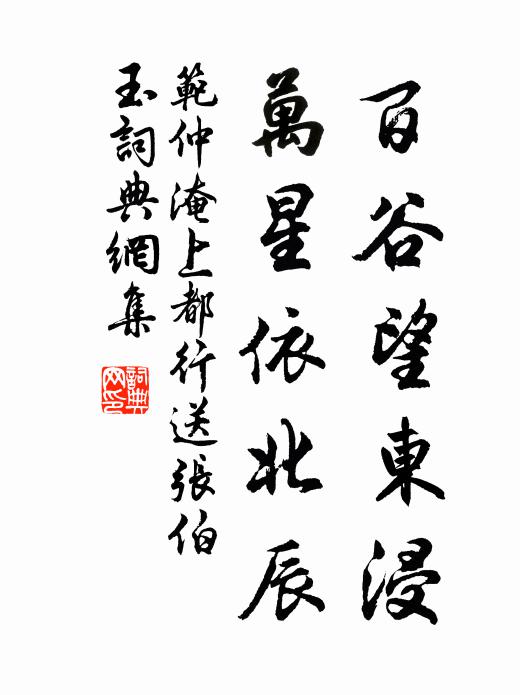 百谷望東浸
萬星依北辰
範仲淹上都行送張伯
玉詞典網集
詞典網印